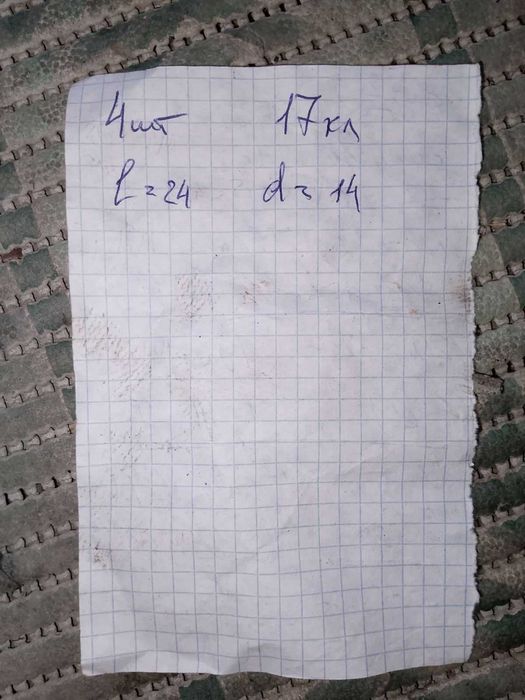 4 шт 17 кл
l = 24 d = 14